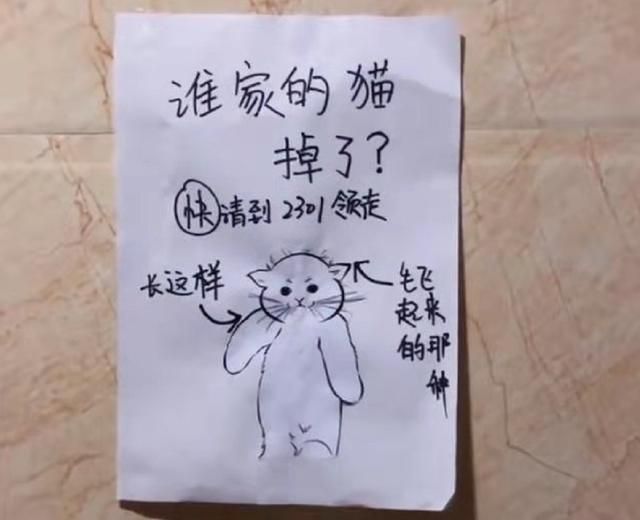 谁家的猫
掉了?
快请到2301领走
长这样
毛飞
起来
的那
种